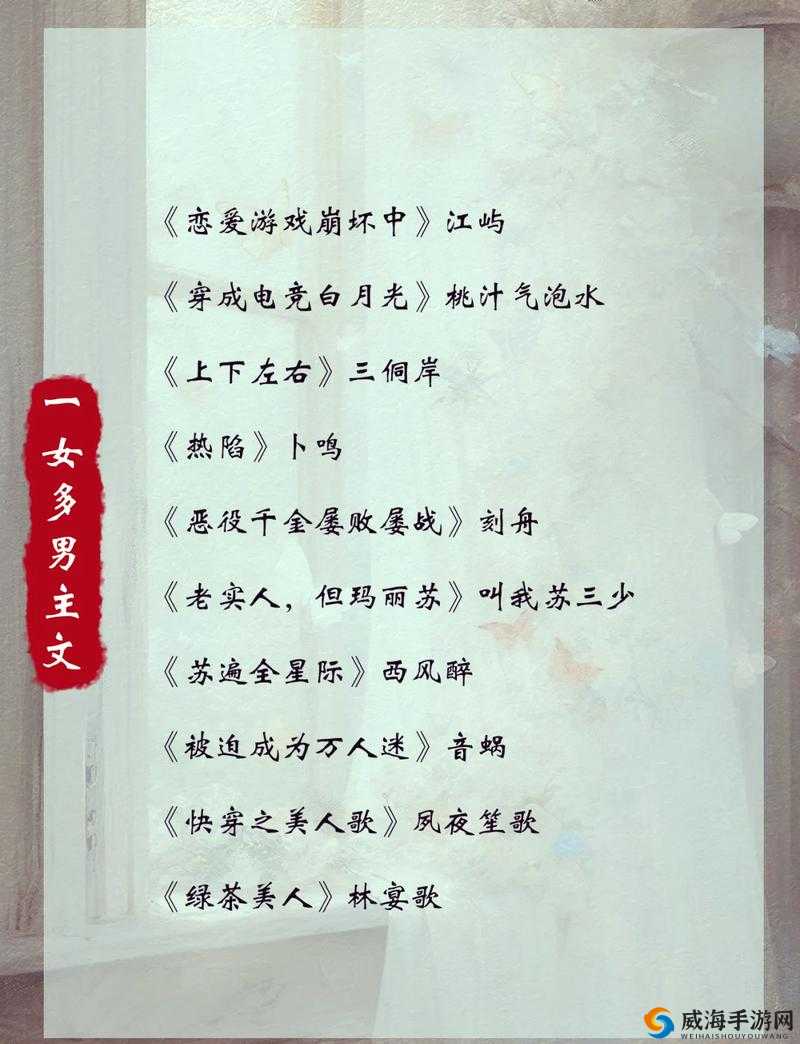 一女多男主文
《恋爱游戏崩坏中》江屿
《穿成电竞白月光》桃汁气泡水
《上下左右》三侗岸
《热陷》卜鸣
《恶役千金屡败屡战》刻舟
《老实人，但玛丽苏》叫我苏三少
《苏遍全星际》西风醉
《被迫成为万人迷》音蜗
《快穿之美人歌》夙夜笙歌
《绿茶美人》林宴歌
威海手游网
WEIHAISHOUYOUWANG